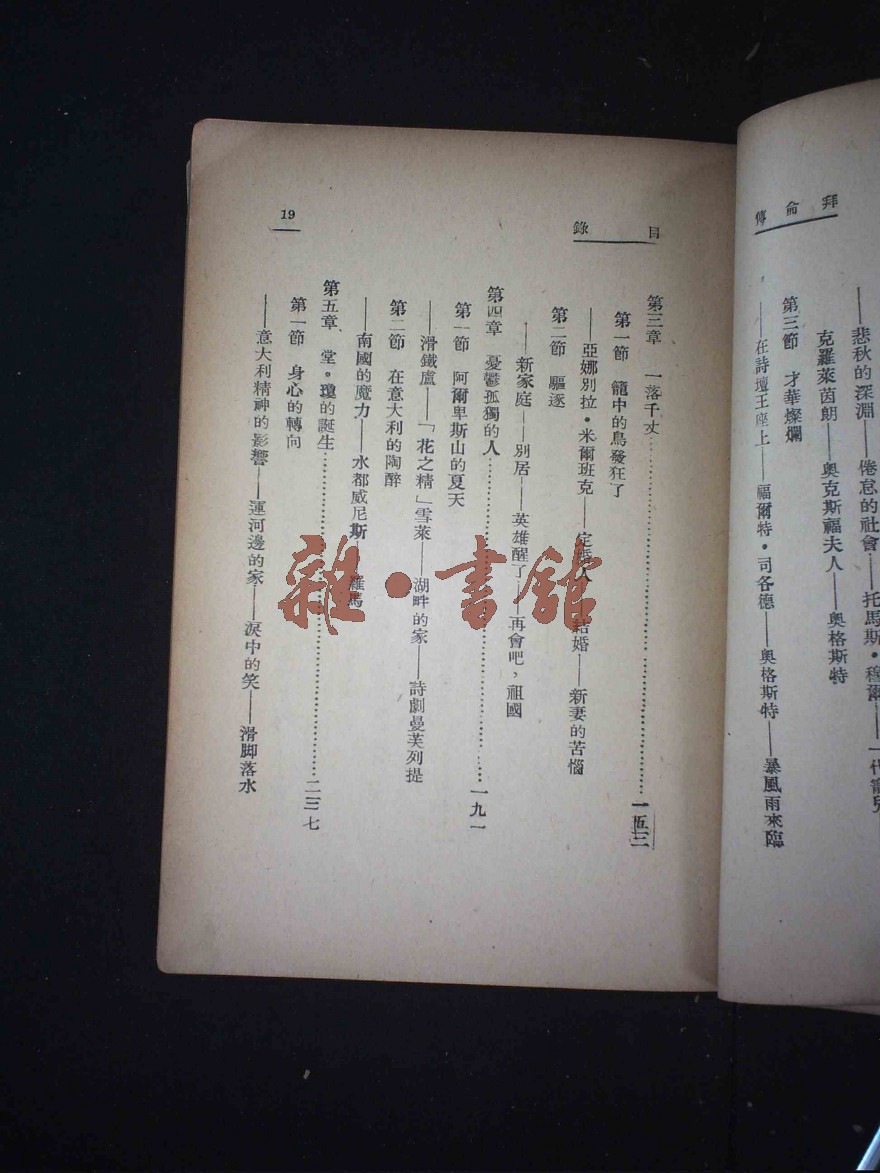 拜侖傳
——悲秋的深淵——倦怠的社會——托馬斯・穆爾——一代寵兒
克羅萊茵朗——奧克斯福夫人——奧格斯特
第三節 才華燦爛
——在詩壇王座上——福爾特・司各德——奧格斯特——暴風雨來臨
目錄
19
第三章 一落千丈 一五三
第一節 籠中的鳥發狂了
——亞娜別拉・米爾班克——定婚人——結婚——新妻的苦惱
第二節 驅逐
——新家庭——別居——英雄醒了——再會吧，祖國
第四章 憂鬱孤獨的人 一九一
第一節 阿爾卑斯山的夏天
——滑鐵盧——「花之精」雪萊——湖畔的家——詩劇曼芙列提
第二節 在意大利的陶醉
——南國的魔力——水都威尼斯——羅馬
第五章 堂・瓊的誕生 二三七
第一節 身心的轉向
——意大利精神的影響——運河邊的家——淚中的笑——滑脚落水
雜・書舘